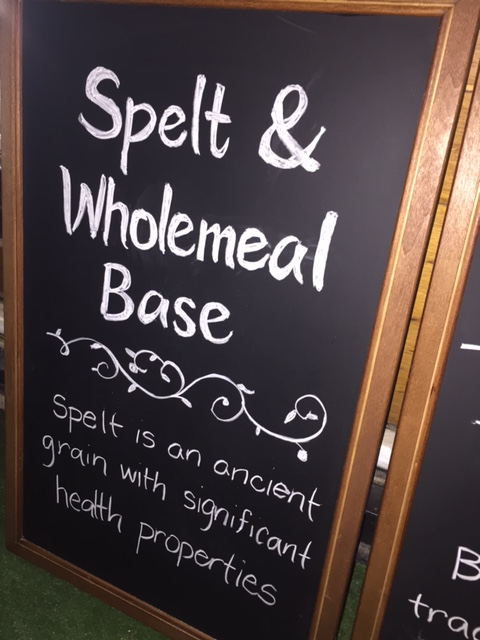 Spelt &
Wholemeal
Base
Spelt is an ancient
grain with significant
health properties
B
trad